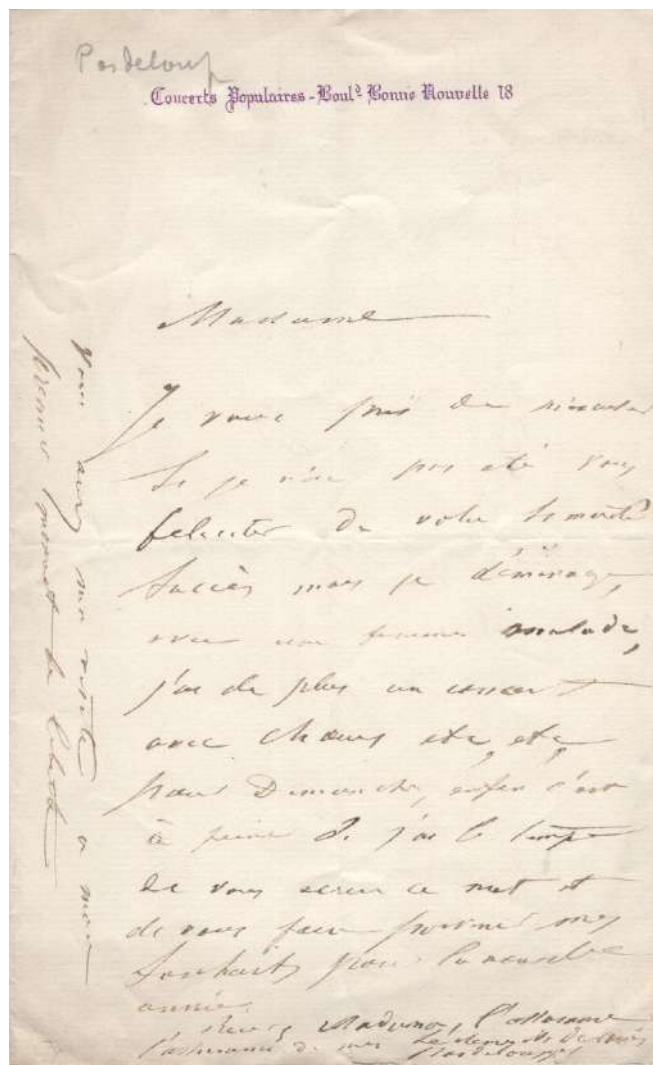 Pasdeloup
Concerts Populaires - Boul.d Bonne Nouvelle 18
Madame
Je vous prie de
Si je n'ai pas été vous
feliciter de votre
Succès mais je déménage,
avec une femme malade,
j'ai de plus un concert
avec chœurs etc, etc
pour Dimanche, enfin c'est
à peine Si j'ai le temps
de vous écrire ce mot et
de vous faire parvenir mes
Souhaits pour la nouvelle
année.
Recevez Madame, l'assurance
l'assurance de mes Sentiments
Pasdeloup
Vous aurez ma visite a mon
premier moment de liberté